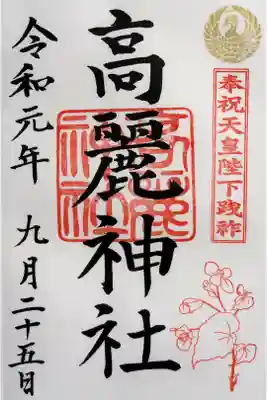 奉祝天皇陛下践祚
高麗神社
令和元年 九月二十五日